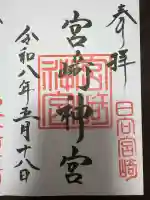 奉拝
宮崎神宮
宮崎神宮
令和八年五月十八日